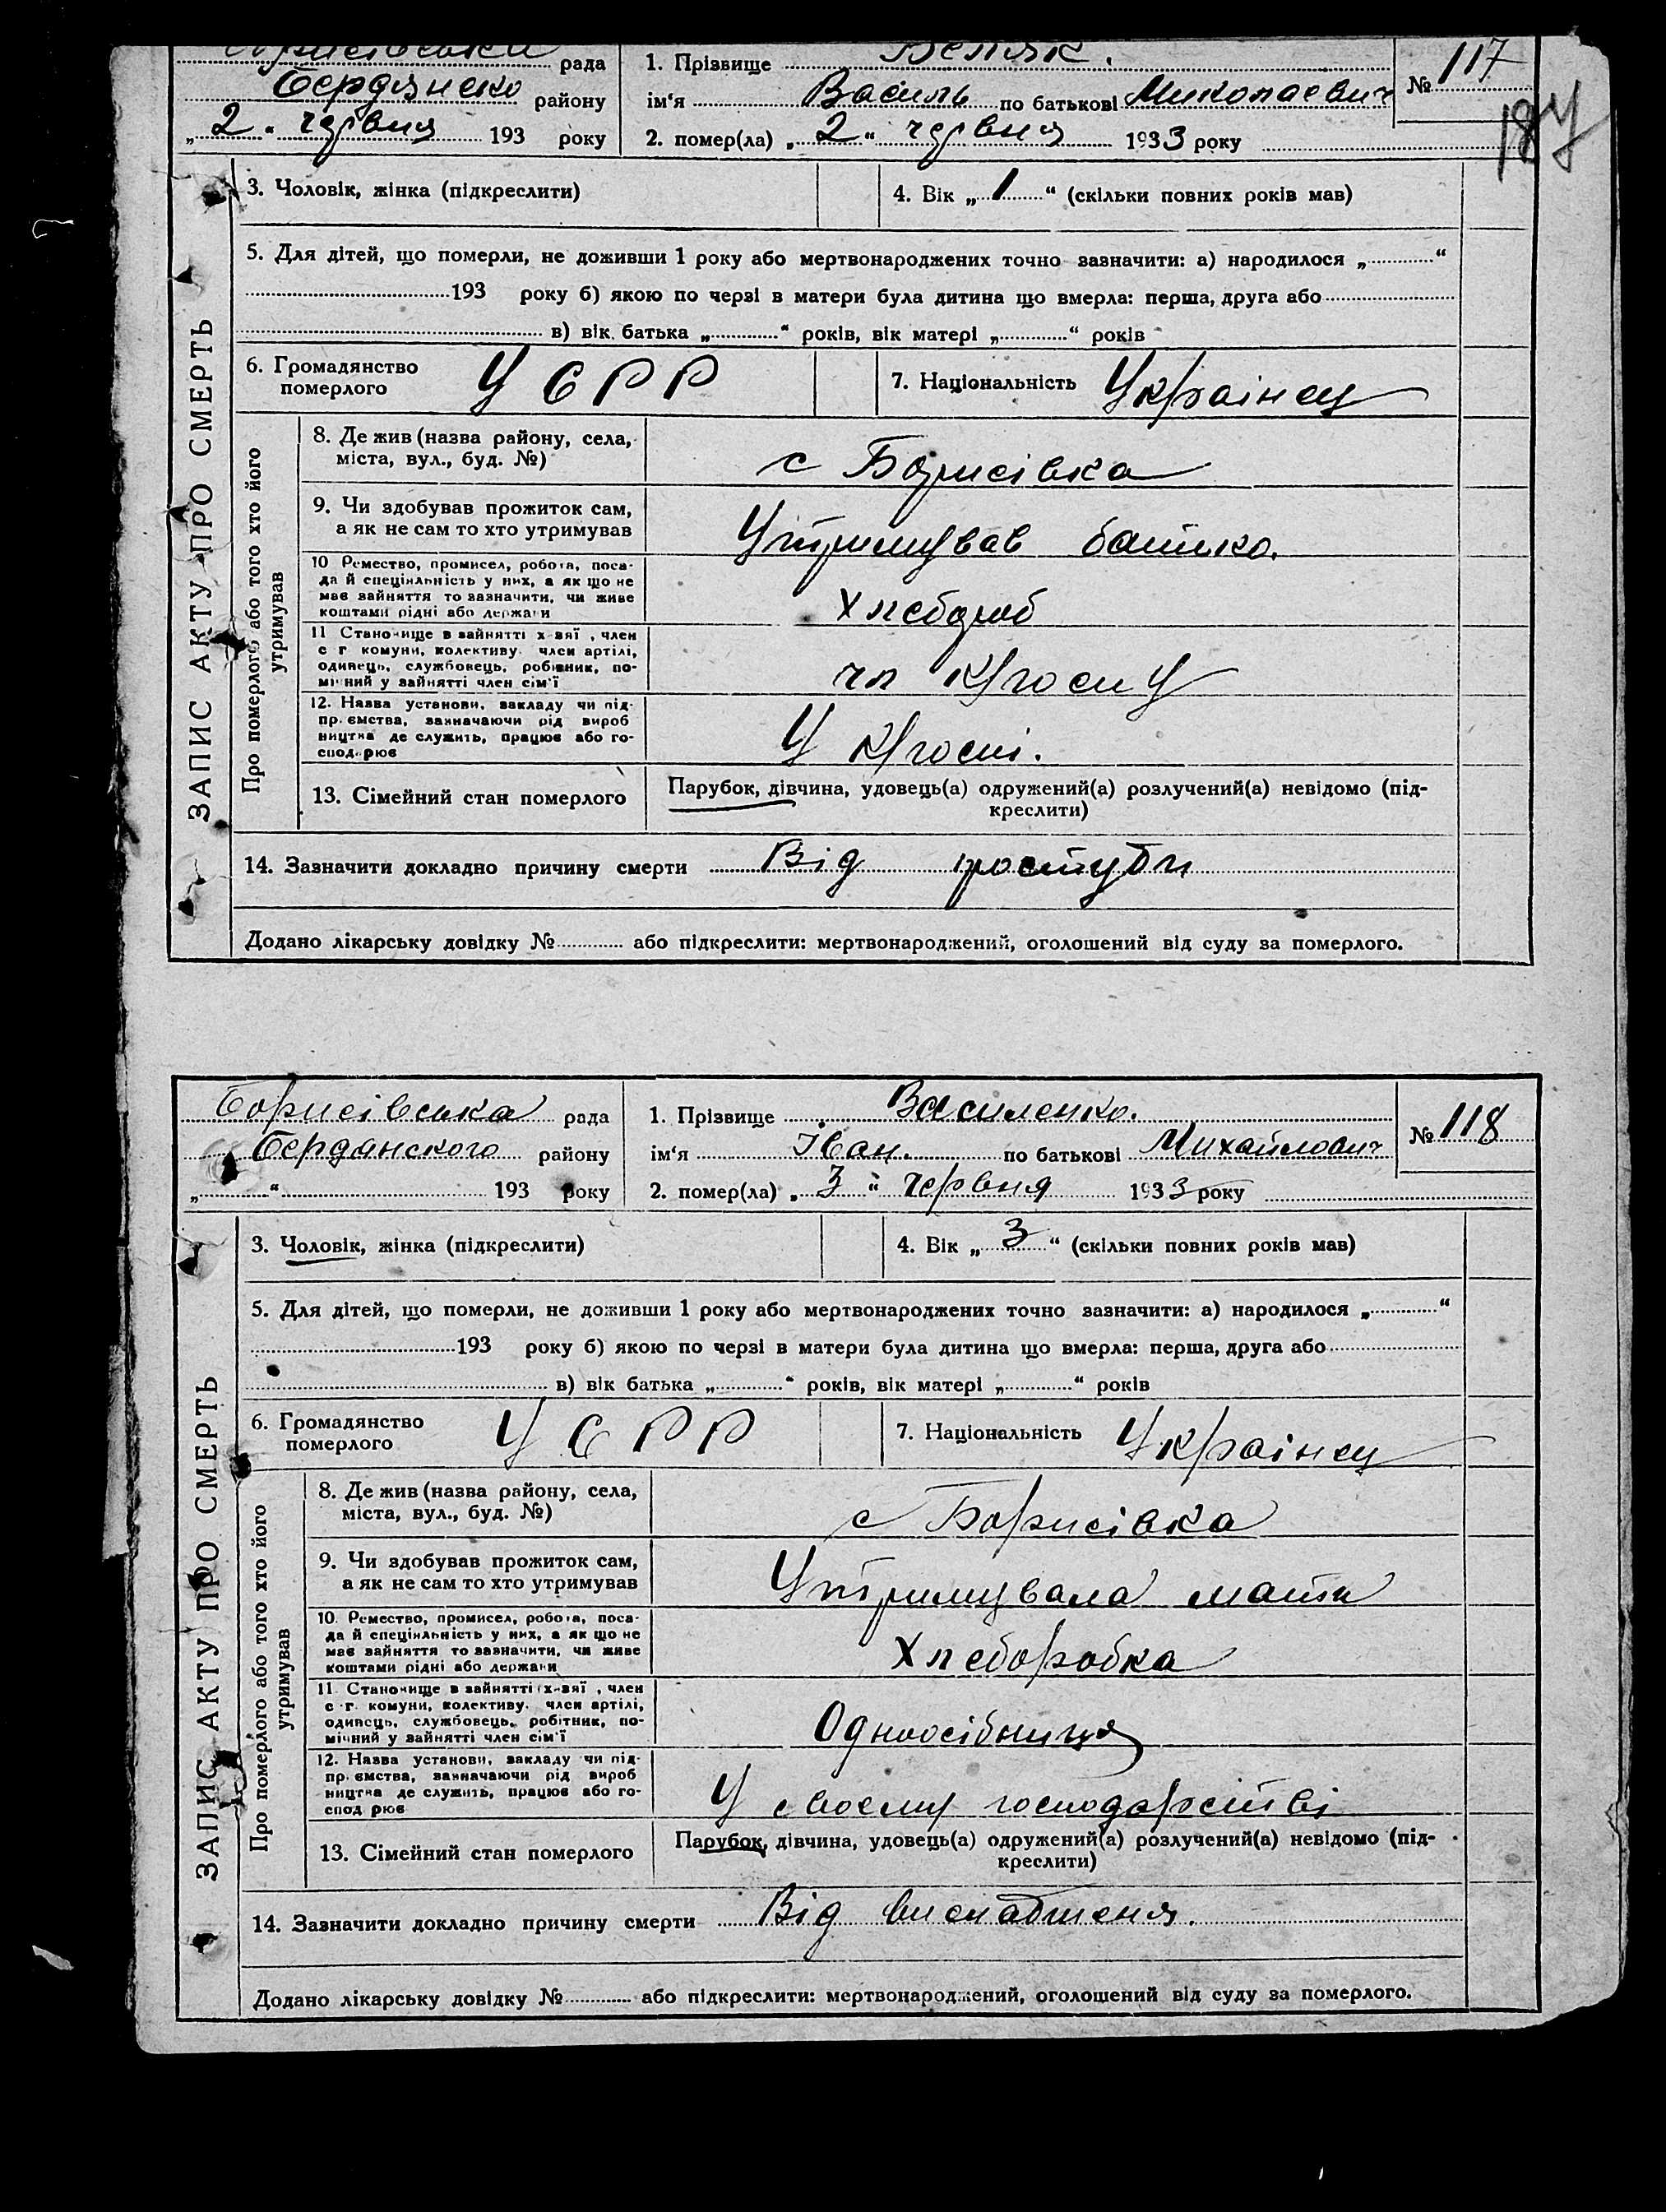 рада
Бердянско району
„ 2 “ червня 193 року
1. Прізвище Беляк.
ім‘я Василь по батькові Миколаевич
2. помер(ла) „ 2 “ червня 1933 року
№ 117
187
3. Чоловік, жінка (підкреслити)
4. Вік „ 1 “ (скільки повних років мав)
5. Для дітей, що померли, не доживши 1 року або мертвонароджених точно зазначити: а) народилося „ “
193 року б) якою по черзі в матери була дитина що вмерла: перша, друга або
в) вік батька „ “ років, вік матері „ “ років
6. Громадянство
померлого
УСРР
7. Національність Украінец
ЗАПИС АКТУ ПРО СМЕРТЬ
Про померлого або того хто його
утримував
8. Де жив (назва району, села,
міста, вул., буд. №)
с Борисівка
9. Чи здобував прожиток сам,
а як не сам то хто утримував
Утримував батько.
10 Ремество, промисел, робота, поса-
да й спеціяльність у них, а як що не
має зайняття то зазначити, чи живе
коштами рідні або держави
Хлебороб
11 Становище в зайнятті х-зяї , член
с г комуни, колективу член артілі,
одинець, службовець, робівник, по-
мічний у зайнятті член сім‘ї
чл К/госпу
12. Назва установи, закладу чи під-
пр ємства, зазначаючи рід вироб
ництва де служить, працює або го-
спод рює
У К/госпі.
13. Сімейний стан померлого
Парубок, дівчина, удовець(а) одружений(а) розлучений(а) невідомо (під-
креслити)
14. Зазначити докладно причину смерти Від простуди
Додано лікарську довідку № або підкреслити: мертвонароджений, оголошений від суду за померлого.
Борисівська рада
Бердянского району
„ “ 193 року
1. Прізвище Василенко.
ім‘я Іван. по батькові Михайлович
2. помер(ла) „ 3 “ червня 1933 року
№ 118
3. Чоловік, жінка (підкреслити)
4. Вік „ 3 “ (скільки повних років мав)
5. Для дітей, що померли, не доживши 1 року або мертвонароджених точно зазначити: а) народилося „ “
193 року б) якою по черзі в матери була дитина що вмерла: перша, друга або
в) вік батька „ “ років, вік матері „ “ років
6. Громадянство
померлого
УСРР
7. Національність Украінец
ЗАПИС АКТУ ПРО СМЕРТЬ
Про померлого або того хто його
утримував
8. Де жив (назва району, села,
міста, вул., буд. №)
с Борисівка
9. Чи здобував прожиток сам,
а як не сам то хто утримував
Утримувала мати
10. Ремество, промисел, робота, поса-
да й спеціяльність у них, а як що не
має зайняття то зазначити, чи живе
коштами рідні або держави
Хлеборобка
11 Становище в зайнятті (х-зяї , член
с г. комуни, колективу. член артілі,
одинець, службовець, робітник, по-
мічний у зайнятті член сім‘ї
Одноосібниця
12. Назва установи, закладу чи під-
пр ємства, зазначаючи рід вироб
ництва де служить, працює або го-
спод рює
У своему господарстві
13. Сімейний стан померлого
Парубок, дівчина, удовець(а) одружений(а) розлучений(а) невідомо (під-
креслити)
14. Зазначити докладно причину смерти Від виснабженя.
Додано лікарську довідку № або підкреслити: мертвонароджений, оголошений від суду за померлого.